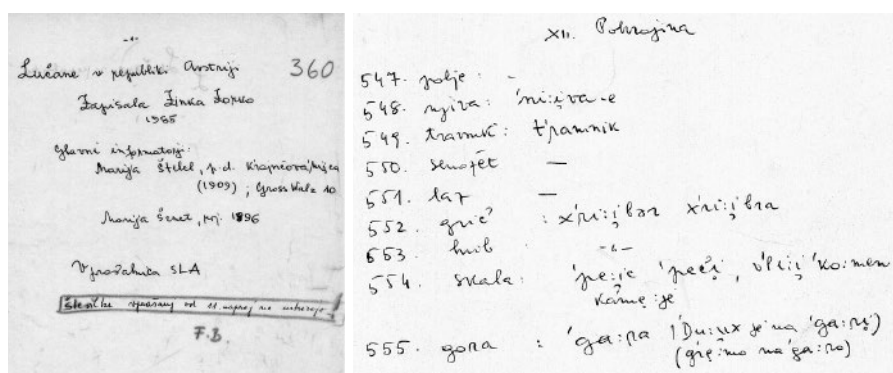 -1-
Lučane v republiki Avstriji 360
Zapisala Zinka Zorko
1985
Glavni informatorji:
Marija Štelcl, p.d.
(1909); Grosswalz 10
Marija Šeret, roj. 1896
Vprašalnica SLA
Številke vprašanj od 11. naprej ne ustrezajo!
F.B.
XII. Pokrajina
547. polje: -
548. njiva: 'ni:i̯va -e
549. travnik: t'ramnik
550. senožet —
551. laz —
552. grič : x'ri:i̯bər x'ri:i̯bra
553. hrib -"-
554. skala: 'pe:č 'peči̯, v'li:i̯ 'ko:men
kame:je
555. gora : 'ga:ra ('Du:ux je na 'ga:ri̯)
(grẹ:mo na 'ga:ro)